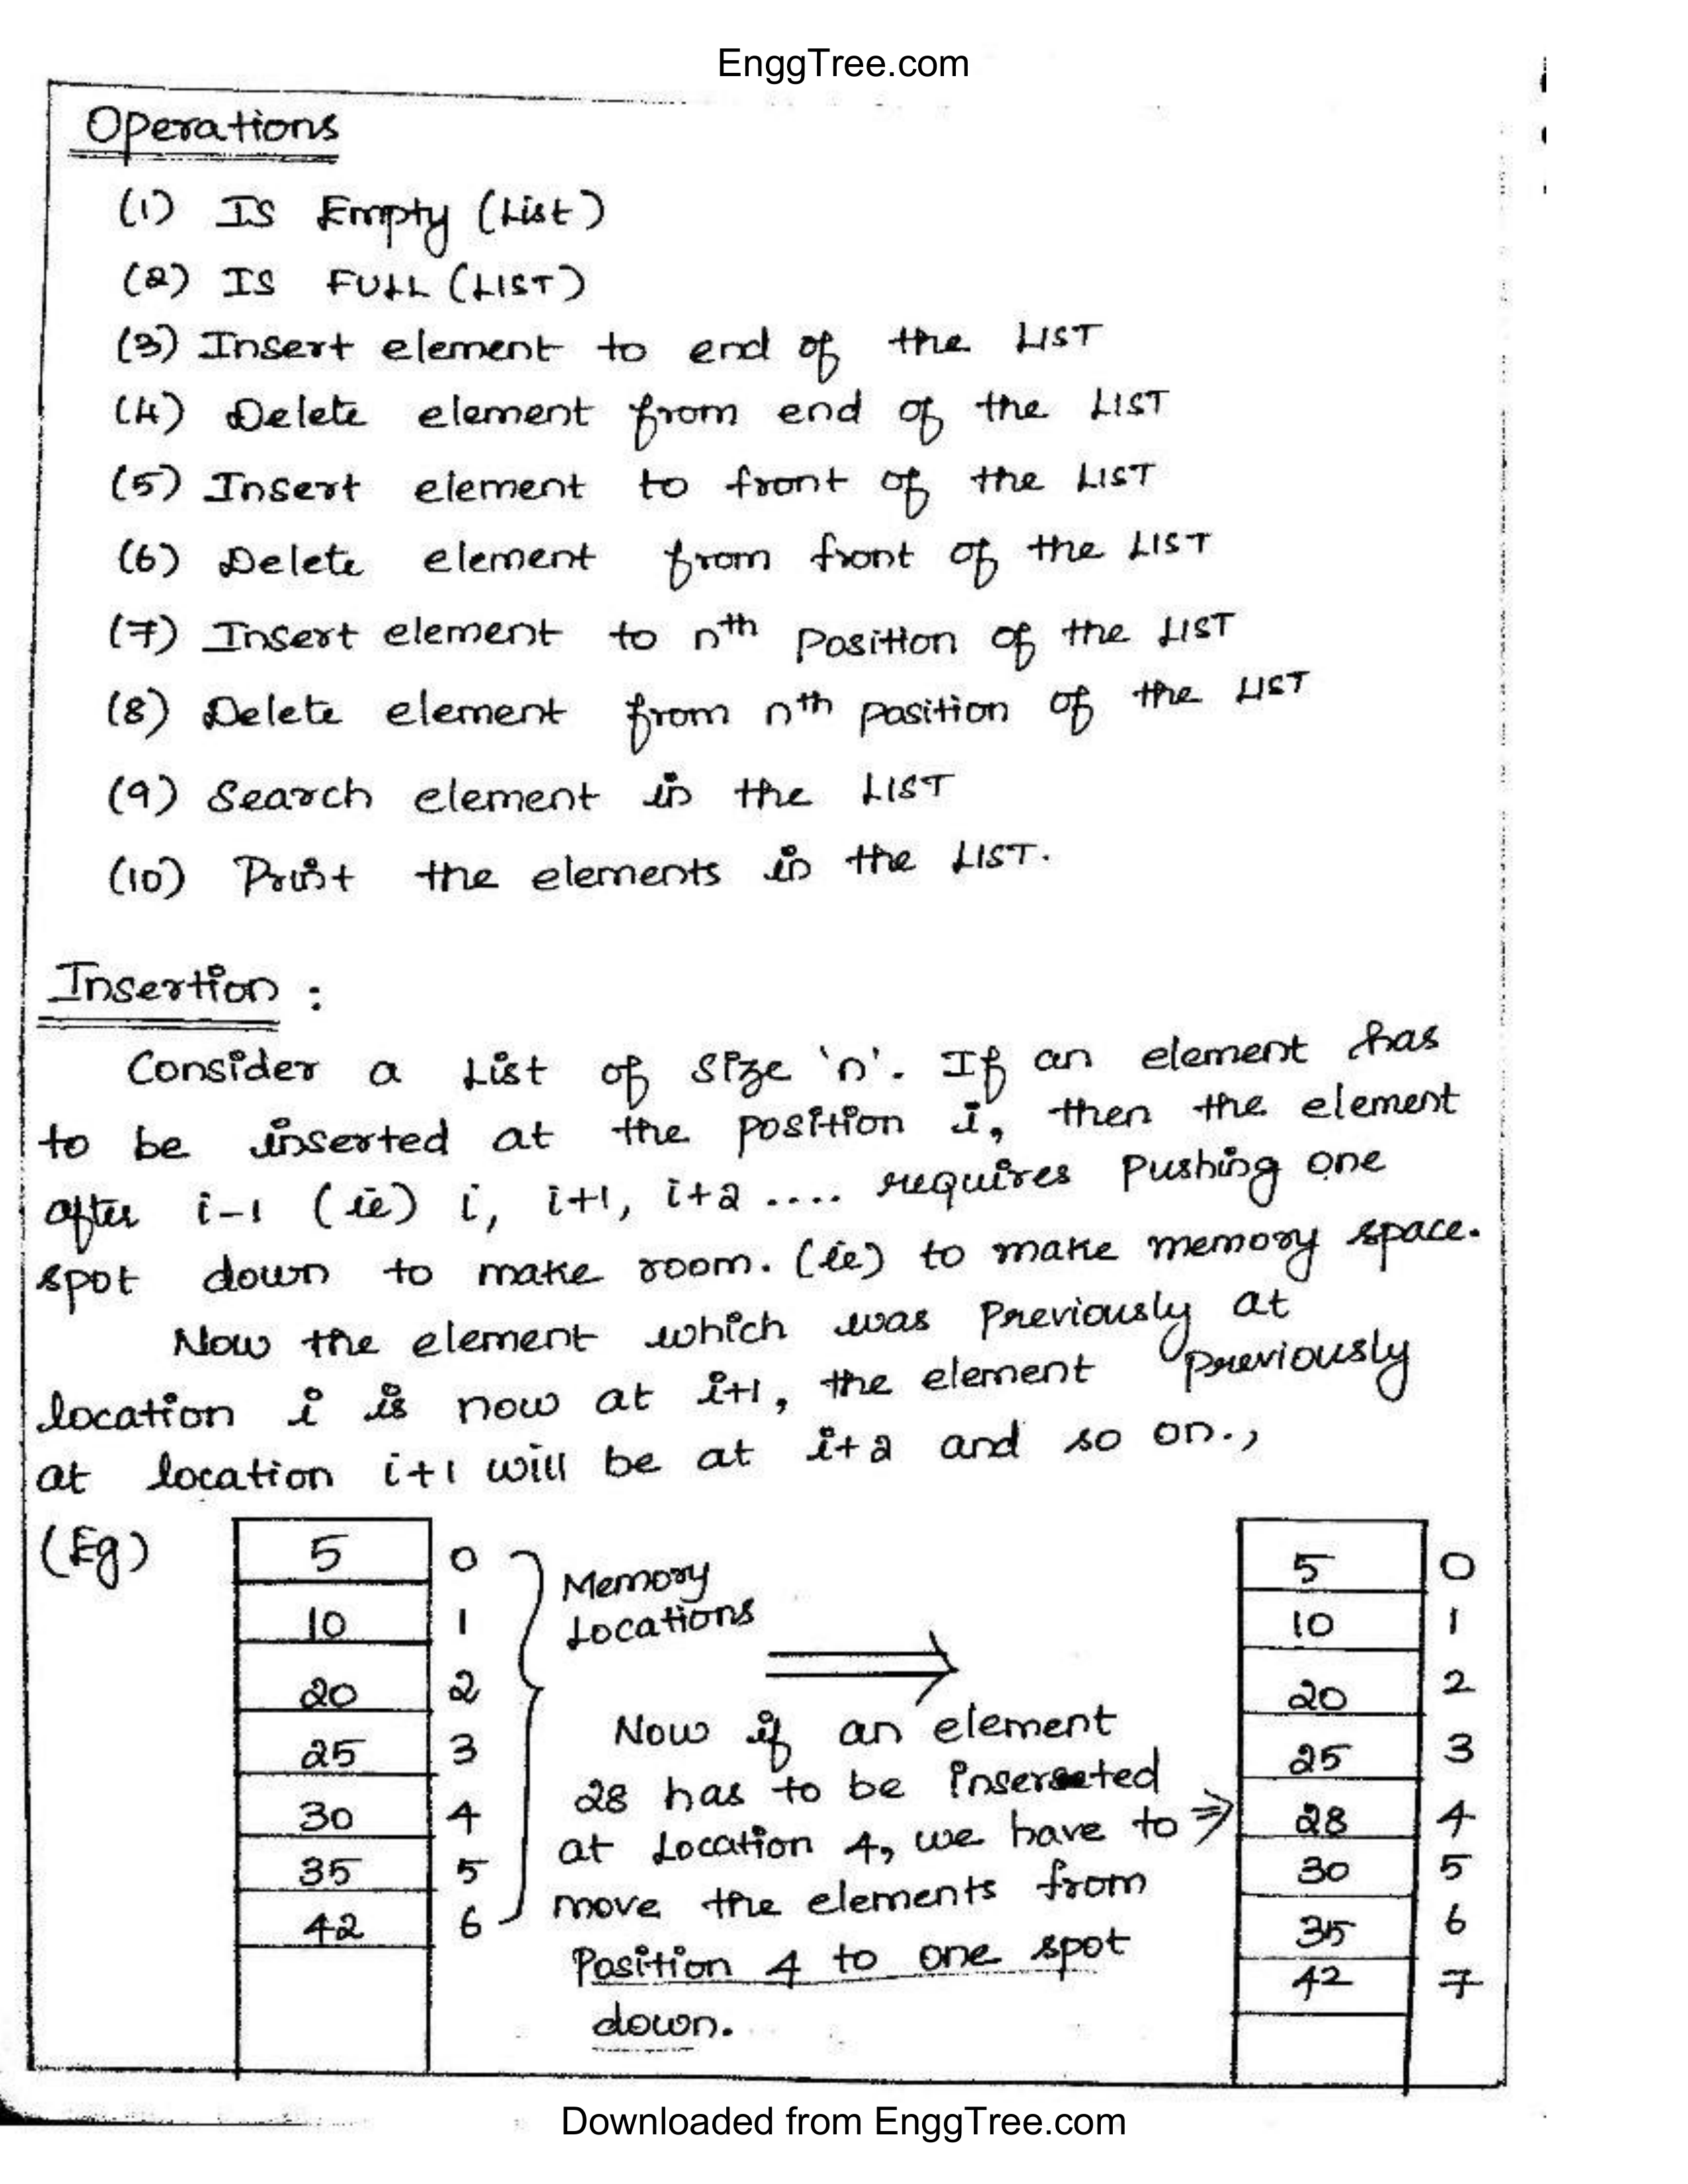 EnggTree.com
Operations
(1) IS Empty (List)
(2) IS FULL (LIST)
(3) Insert element to end of the LIST
(4) Delete element from end of the LIST
(5) Insert element to front of the LIST
(6) Delete element from front of the LIST
(7) Insert element to nth Position of the LIST
(8) Delete element from nth position of the LIST
(9) Search element in the LIST
(10) Print the elements in the LIST.
Insertion :
Consider a List of Size 'n'. If an element has
to be inserted at the position i, then the element
after i-1 (ie) i, i+1, i+2 .... requires Pushing one
spot down to make room. (ie) to make memory space.
Now the element which was Previously at
location i is now at i+1, the element previously
at location i+1 will be at i+2 and so on.,
(Eg)
5 0
10 1
20 2
25 3
30 4
35 5
42 6
Memory
Locations
Now if an element
28 has to be inserseted
at Location 4, we have to ⇒
move the elements from
Position 4 to one spot
down.
5 0
10 1
20 2
25 3
28 4
30 5
35 6
42 7
Downloaded from EnggTree.com